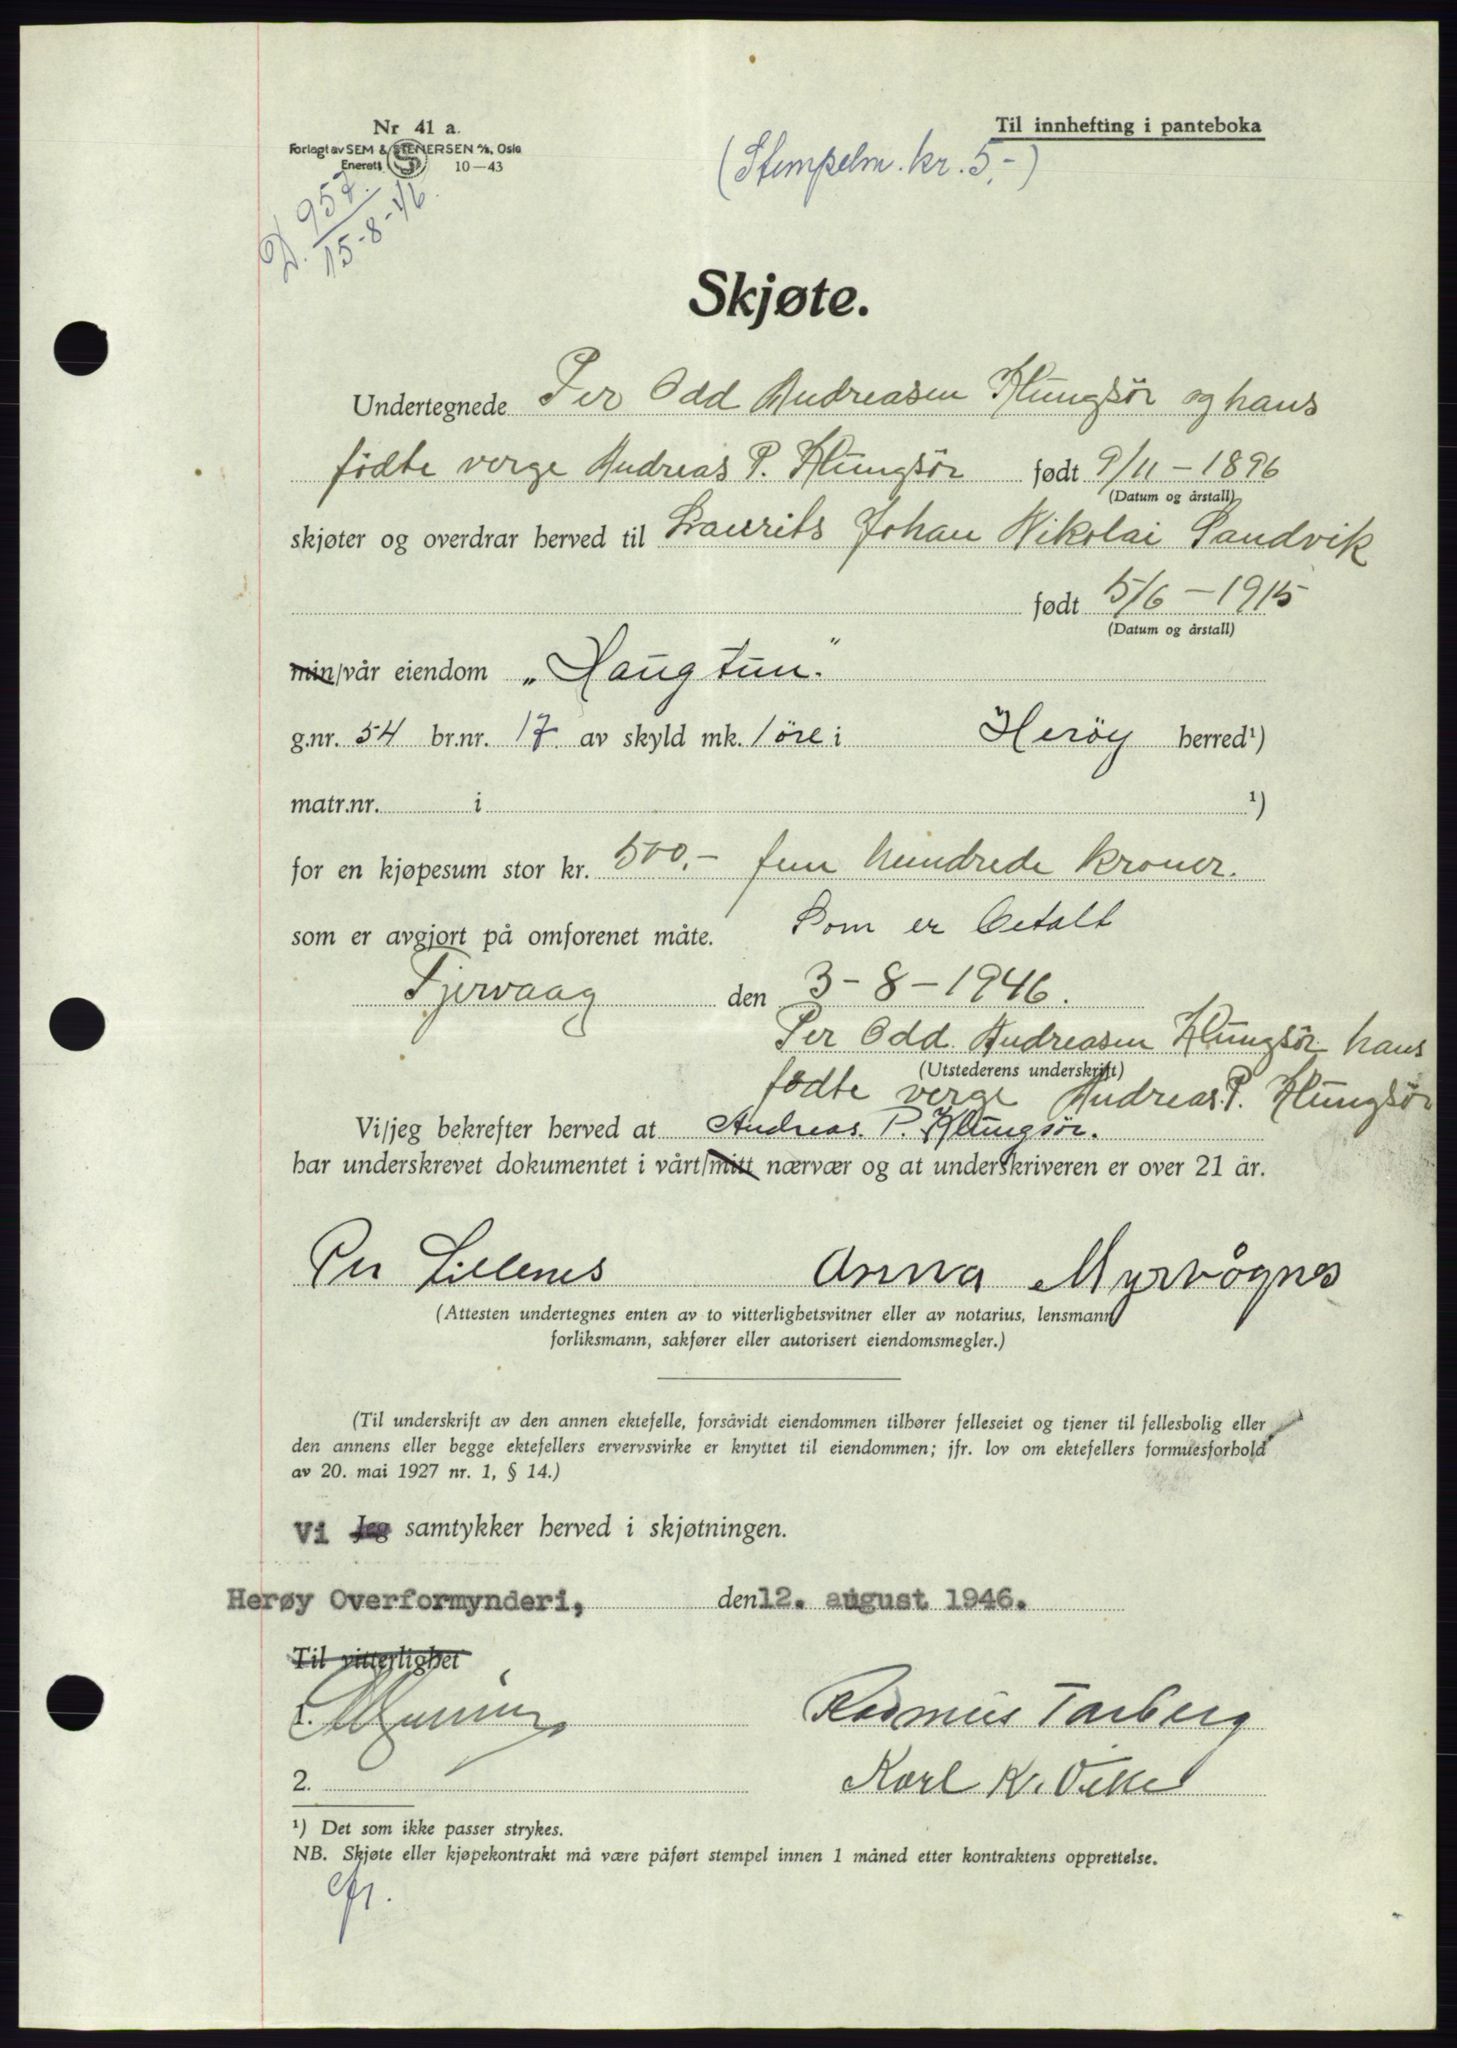 Nr 41 a.
Forlagt av SEM & STENERSEN A/S, Oslo
Enerett S 10—43
Til innhefting i panteboka
(Stempelm. kr. 5,-)
D. 952.
15-8-46.
Skjøte.
Undertegnede Per Odd Andreasen Klungsör og hans
födte verge Andreas P. Klungsör født 9/11 - 1896
(Datum og årstall)
skjøter og overdrar herved til Laurits Johan Nikolai Sandvik
født 5/6 - 1915
(Datum og årstall)
min/vår eiendom „Haugtun."
g.nr. 54 br.nr. 17 av skyld mk. 1 öre i Heröy herred¹)
matr.nr. i ¹)
for en kjøpesum stor kr. 500,- fem hundrede kroner.
som er avgjort på omforenet måte. Som er betalt
Tjervaag den 3-8-1946.
Per Odd Andreasen Klungsör hans
(Utstederens underskrift)
födte verge Andreas P. Klungsör
Vi/jeg bekrefter herved at Andreas. P. Klungsör.
har underskrevet dokumentet i vårt/mitt nærvær og at underskriveren er over 21 år.
Per Lillenes Anna Myrvågnes
(Attesten undertegnes enten av to vitterlighetsvitner eller av notarius, lensmann
forliksmann, sakfører eller autorisert eiendomsmegler.)
(Til underskrift av den annen ektefelle, forsåvidt eiendommen tilhører felleseiet og tjener til fellesbolig eller
den annens eller begge ektefellers ervervsvirke er knyttet til eiendommen; jfr. lov om ektefellers formuesforhold
av 20. mai 1927 nr. 1, § 14.)
Vi Jeg samtykker herved i skjøtningen.
Herøy Overformynderi, den 12. august 1946.
Til vitterlighet
1. Rasmus Tarberg
2. Karl K.
¹) Det som ikke passer strykes.
NB. Skjøte eller kjøpekontrakt må være påført stempel innen 1 måned etter kontraktens opprettelse.